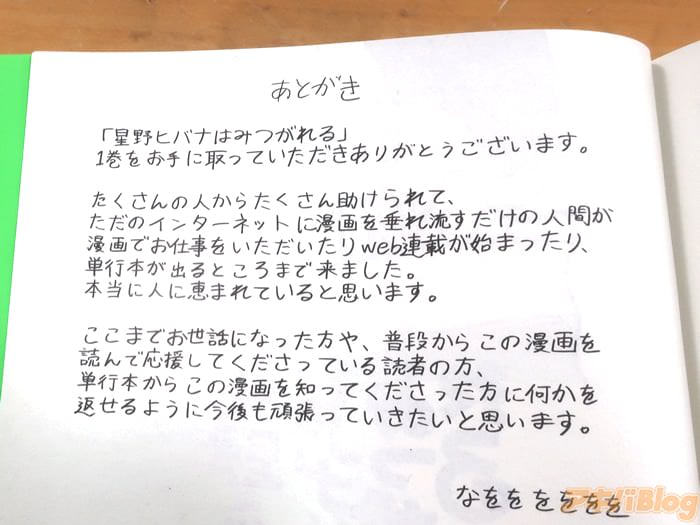 あとがき
「星野ヒバナはみつがれる」
1巻をお手に取っていただきありがとうございます。
たくさんの人からたくさん助けられて、
ただのインターネットに漫画を垂れ流すだけの人間が
漫画でお仕事をいただいたりweb連載が始まったり、
単行本が出るところまで来ました。
本当に人に恵まれていると思います。
ここまでお世話になった方や、普段からこの漫画を
読んで応援してくださっている読者の方、
単行本からこの漫画を知ってくださった方に何かを
返せるように今後も頑張っていきたいと思います。
なををををををを
アキバBlog